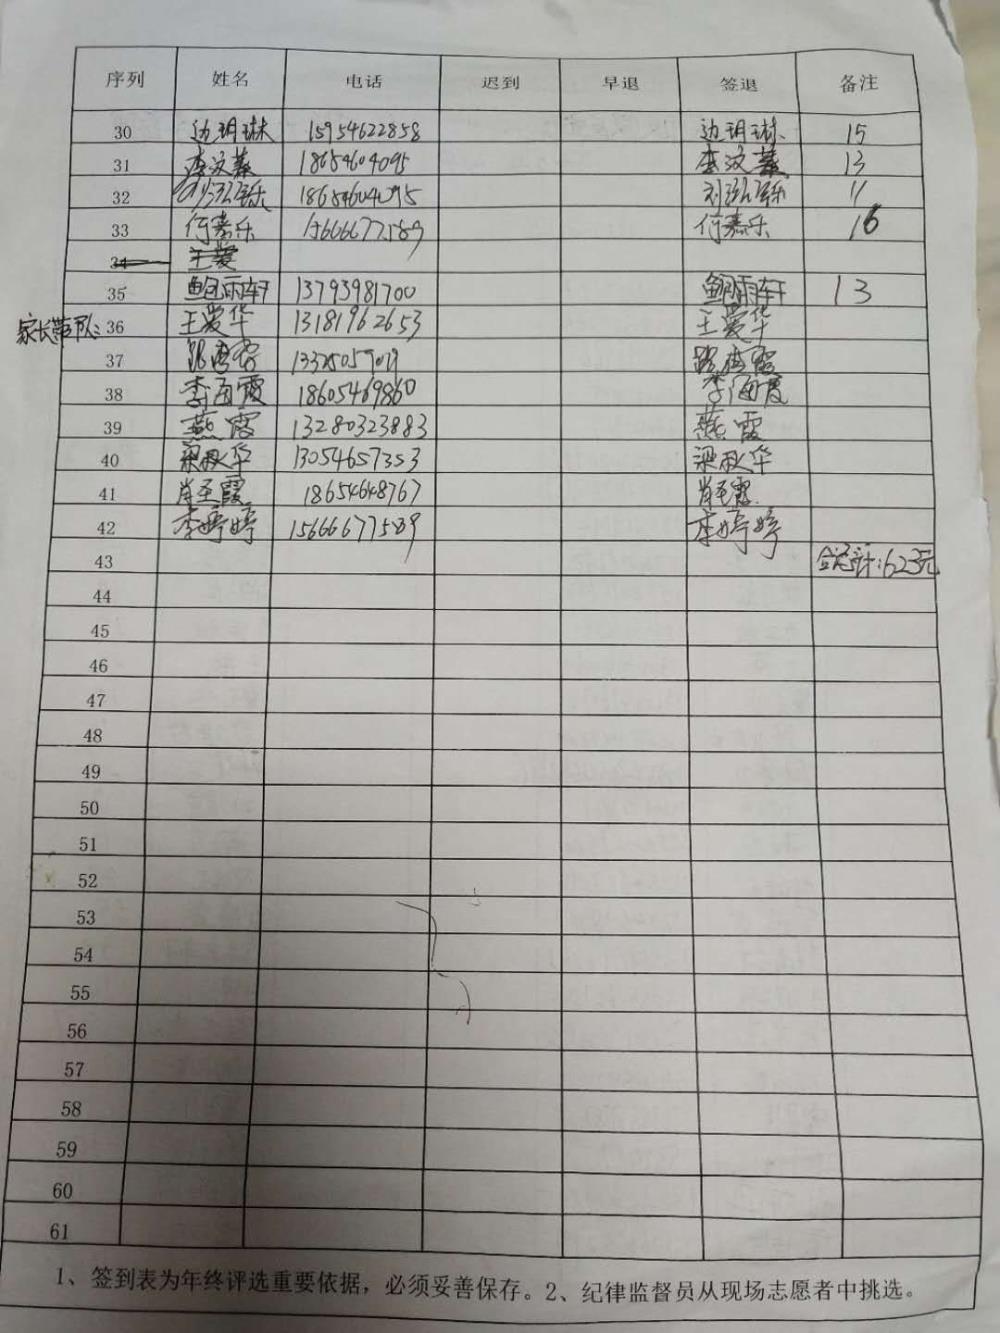 序列 姓名 电话 迟到 早退 签退 备注
30 边玥琳 15954622858 边玥琳 15
31 李汶蓁 18654604095 李汶蓁 13
32 18654604095 11
33 何嘉乐 15666677589 何嘉乐 16
34 王爱
35 鲍雨轩 13793981700 鲍雨轩 13
家长带队: 36 王爱华 13181962653 王爱华
37
38 李海霞 18605469860 李海霞
39 燕霞 13280323883 燕霞
40 梁秋华 13054657353 梁秋华
41 肖圣霞 18654648767 肖圣霞
42 李婷婷 15666677589 李婷婷
43 合计:623元
44
45
46
47
48
49
50
51
52
53
54
55
56
57
58
59
60
61
1、签到表为年终评选重要依据，必须妥善保存。2、纪律监督员从现场志愿者中挑选。